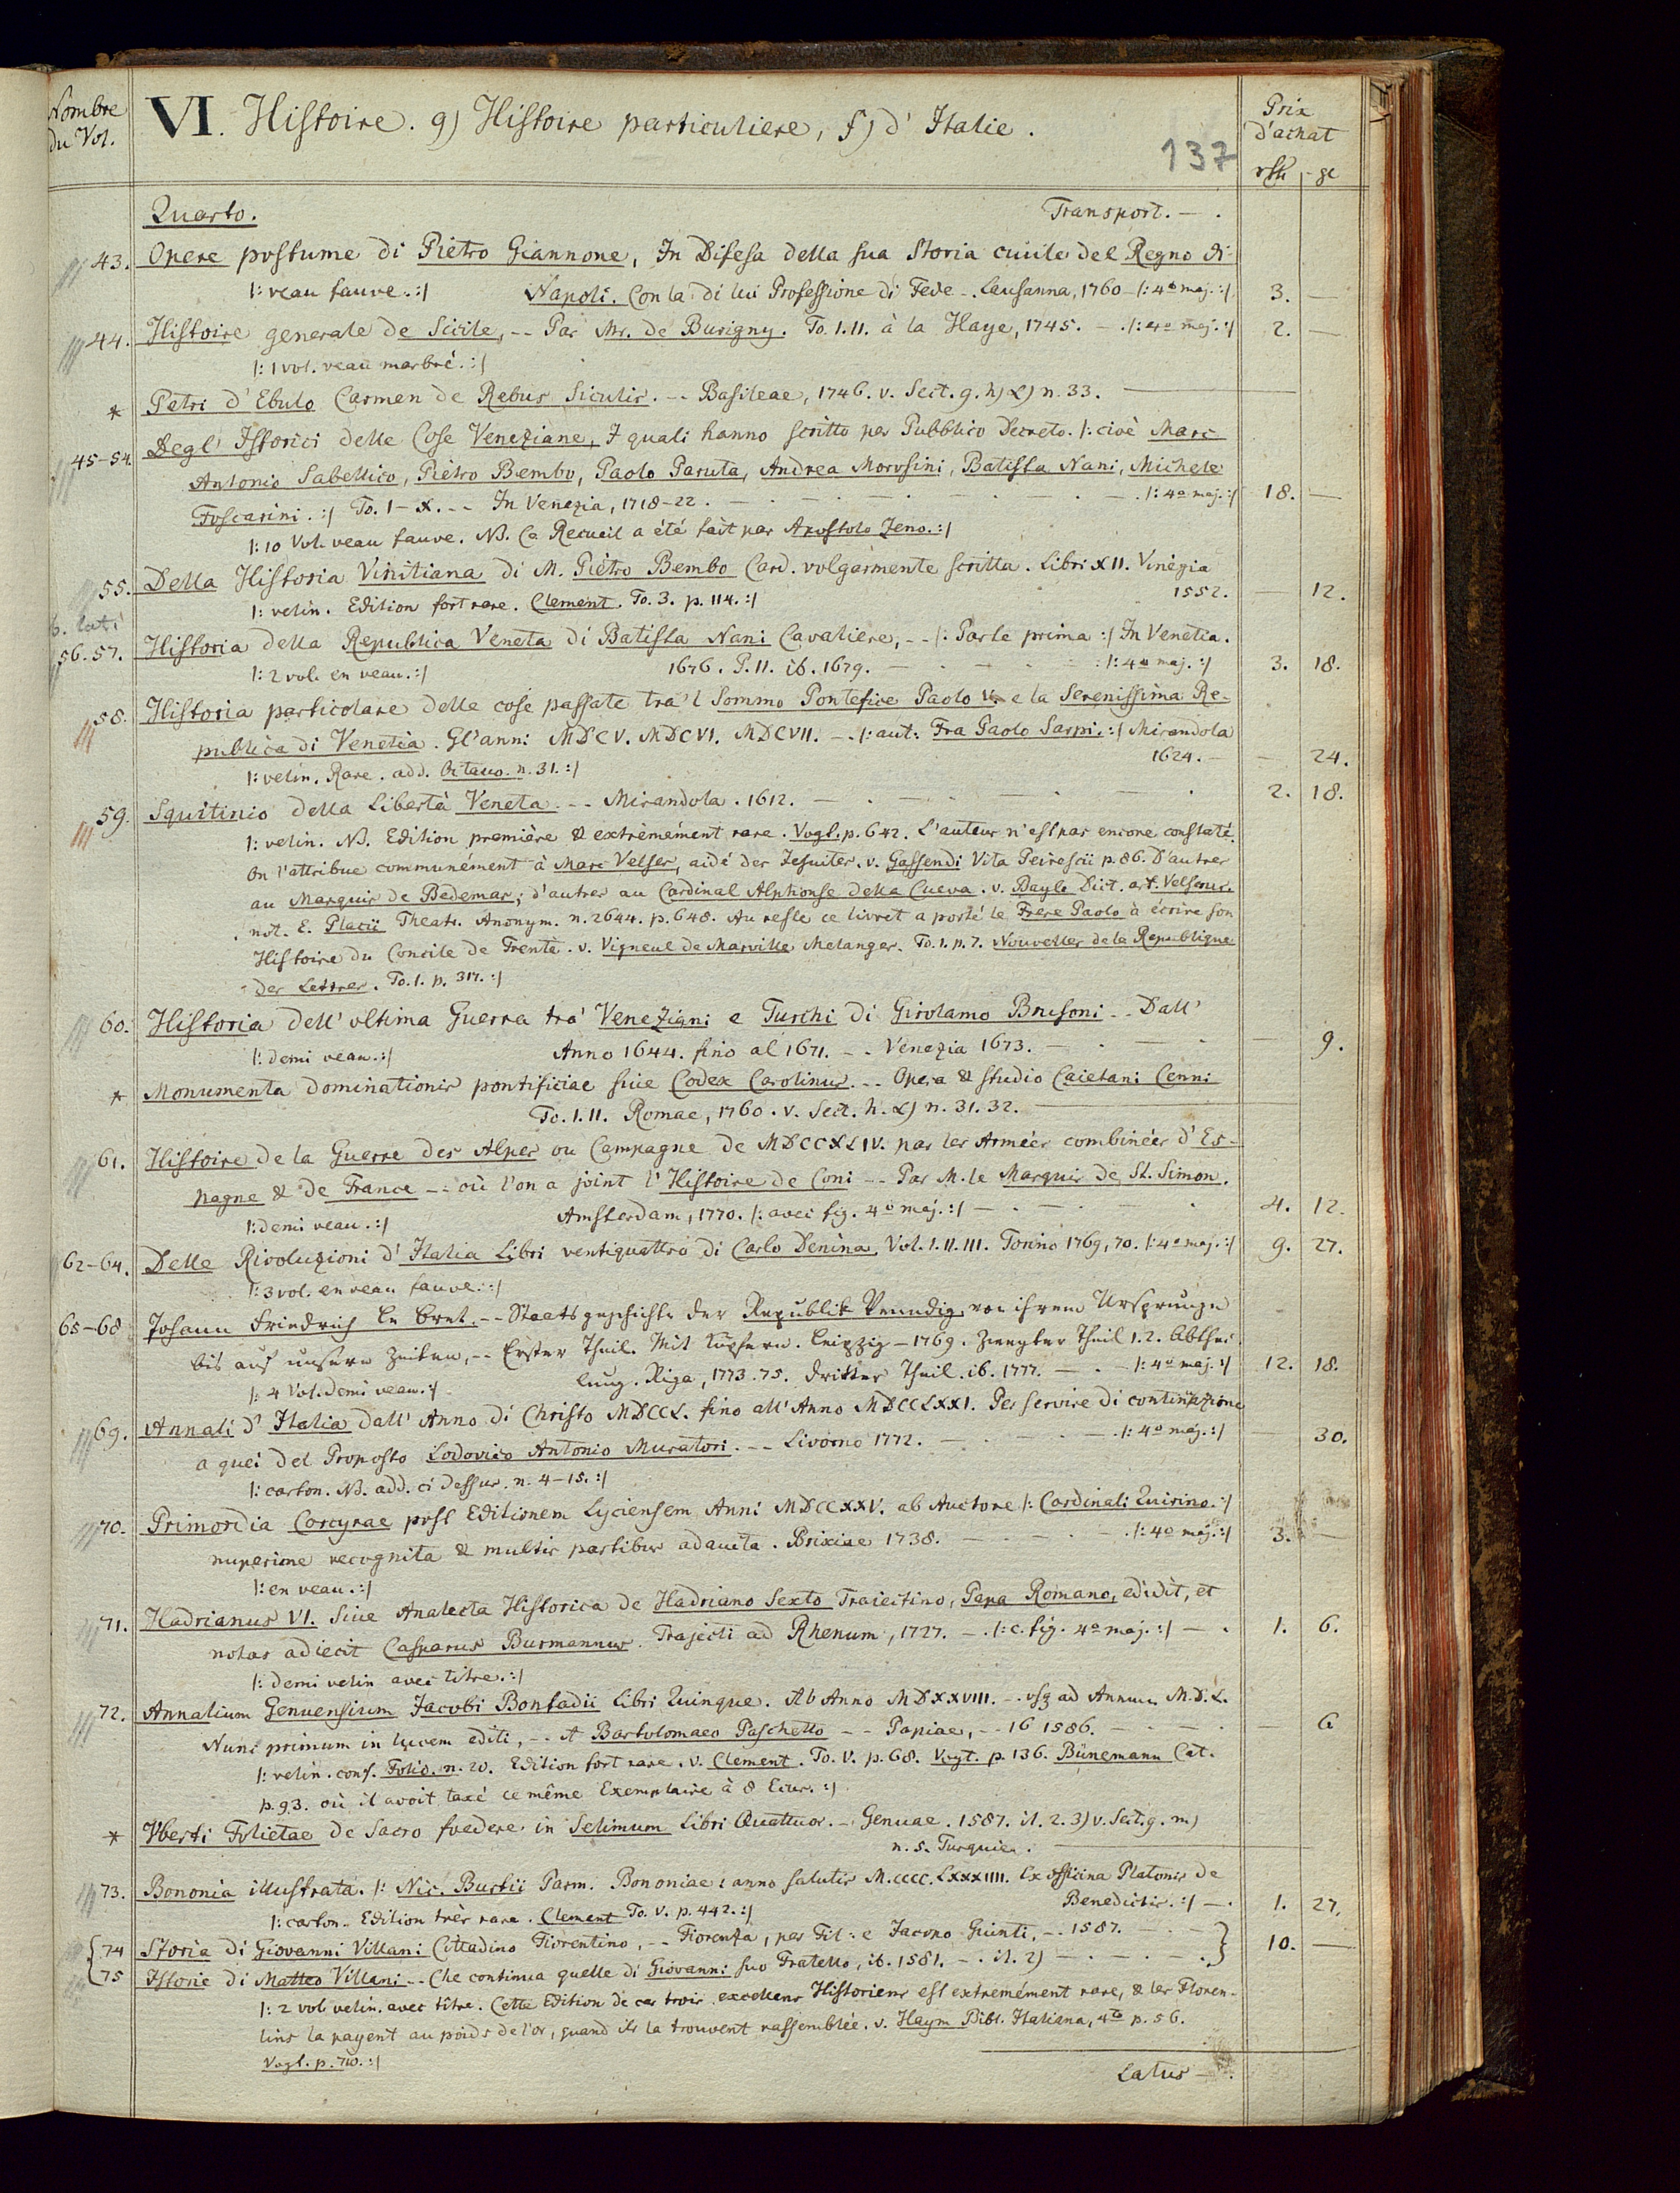 Nombre du Vol.
VI. Histoire. g) Histoire particuliere, f) d'Italie.
137
Prix d'achat
rth gl
Quarto. Transport. — .
43. Opere postume di Pietro Giannone, In Difesa della sua Storia civile del Regno di
|: veau fauve. :| Napoli. Con la di lui Professione di Fede -. Lausanna, 1760 — |: 4o maj. :| 3. —
44. Histoire generale de Sicile, -- Par Mr. de Burigny. To. I. II. à la Haye, 1745. — . |: 4o maj. :| 2. —
|: 1 vol. veau marbré. :|
* Petri d'Ebulo Carmen de Rebus Siculis. -- Basileae, 1746. v. Sect. g. h) α) n. 33. —
45-54 Degl' Istorici delle Cose Veneziane, I quali hanno scritto per Pubblico Decreto. |: cioè Marc
Antonio Sabellico, Pietro Bembo, Paolo Paruta, Andrea Morosini, Batista Nani, Michele
Foscarini. :| To. I-X. -- In Venezia, 1718-22. — . — . — . |: 4o maj. :| 18. —
|: 10 Vol. veau fauve. NB. Ce Recueil a été fait par Apostolo Zeno. :|
55. Della Historia Vinitiana di M. Pietro Bembo Card. volgarmente scritta. Libri XII. Vinegia
|: velin. Edition fort rare. Clement. To. 3. p. 114. :| 1552. — 12.
56. 57. Historia della Republica Veneta di Batista Nani Cavaliere, -- |: Parte prima :| In Venetia.
|: 2 vol. en veau. :| 1676. P. II. ib. 1679. — . — . |: 4o maj. :| 3. 18.
58. Historia particolare delle cose passate tra'l Sommo Pontefice Paolo V. e la Serenissima Re-
publica di Venetia. Gl'anni MDCV. MDCVI. MDCVII. -. |: aut. Fra Paolo Sarpi. :| Mirandola
|: velin. Rare. add. Octavo. n. 31. :| 1624. — — 24.
59. Squitinio della Libertà Veneta. -- Mirandola. 1612. — . — . — . 2. 18.
|: velin. NB. Edition première & extrèmement rare. Vogt. p. 642. L'auteur n'est pas encore constaté.
On l'attribue communément à Marc Velser, aidé des Jesuites. v. Gassendi Vita Peirescii p. 86. D'autres
au Marquis de Bedemar; d'autres au Cardinal Alphonse della Cueva. v. Bayle Dict. art. Velserus.
not. E. Placii Theatr. Anonym. n. 2644. p. 648. Au reste ce livret a porté le Frere Paolo à écrire son
Histoire du Concile de Trente. v. Vigneul de Marville Melanges. To. 1. p. 7. Nouvelles de la Republique
des Lettres. To. 1. p. 317. :|
60. Historia dell' ultima Guerra tra' Veneziani e Turchi di Girolamo Brusoni -. Dall'
|: demi veau. :| Anno 1644. fino al 1671. -. Venezia 1673. — . — . — 9.
* Monumenta dominationis pontificiae sive Codex Carolinus. -. Opera & studio Caietani Cenni
To. I. II. Romae, 1760. v. Sect. h. α) n. 31. 32. —
61. Histoire de la Guerre des Alpes ou Campagne de MDCCXLIV. par les Armées combinées d'Es-
pagne & de France -- où l'on a joint l'Histoire de Coni -- Par M. le Marquis de St. Simon.
|: demi veau. :| Amsterdam, 1770. |: avec fig. 4o maj. :| — . — . 4. 12.
62-64. Delle Rivoluzioni d'Italia Libri ventiquattro di Carlo Denina, Vol. I. II. III. Torino 1769, 70. |: 4o maj. :| 9. 27.
|: 3 vol. en veau fauve. :|
65-68 Johann Friedrich Le Bret. -- Staatsgeschichte der Republik Venedig, von ihrem Ursprunge
bis auf unsere Zeiten, -- Erster Theil. Mit Kupfern. Leipzig — 1769. Zweyter Theil 1. 2. Abthei-
lung. Riga, 1773. 75. Dritter Theil. ib. 1777. — . — |: 4o maj. :| 12. 18.
|: 4 Vol. demi veau. :|
69. Annali d'Italia dall'Anno di Christo MDCCL. fino all'Anno MDCCLXXI. Per servire di continuazione
a quei del Proposto Lodovico Antonio Muratori. -- Livorno 1772. — . — . |: 4o maj. :| — 30.
|: carton. NB. add. ci dessus. n. 4-15. :|
70. Primordia Corcyrae post Editionem Lyciensem Anni MDCCXXV. ab Auctore |: Cardinali Quirino. :|
nuperime recognita & multis partibus adaucta. Brixiae 1738. — . — . |: 4o maj. :| 3. —
|: en veau. :|
71. Hadrianus VI. Sive Analecta Historica de Hadriano Sexto Traiectino, Papa Romano, edidit, et
notas adiecit Casparus Burmannus. Trajecti ad Rhenum, 1727. — . |: c. fig. 4o maj. :| — . 1. 6.
|: demi velin avec titre. :|
72. Annalium Genuensium Jacobi Bonfadii Libri Quinque. Ab Anno MDXXVIII. -. usq ad Annum M.D.L.
Nunc primum in lucem editi, -. A Bartolomaeo Paschetto -- Papiae, -. 1586. — . — — 6
|: velin. conf. Folio. n. 20. Edition fort rare. v. Clement. To. V. p. 68. Vogt. p. 136. Bünemann Cat.
p. 93. où il avoit taxé ce même Exemplaire à 8 Ecus. :|
* Vberti Folietae de Sacro foedere in Selimum Libri Quattuor. -. Genuae. 1587. il. 2. 3) v. Sect. g. m)
n. 5. Turquie. —
73. Bononia illustrata. |: Nic. Burtii Parm. Bononiae: anno salutis M.cccc.Lxxxiiii. Ex officina Platonis de
|: carton. Edition très rare. Clement To. V. p. 442. :| Benedictis. :| — . 1. 27.
74 Storia di Giovanni Villani Cittadino Fiorentino, -- Fiorenza, per Fil: e Jacopo Giunti, -. 1587. — . —
75 Istorie di Matteo Villani -. Che continua quelle di Giovanni suo Fratello, ib. 1581. -. il. 2) — . — . 10. —
|: 2 vol velin. avec titre. Cette Edition de ces trois excellens Historiens est extremément rare, & les Floren-
tins la payent au poids de l'or, quand ils la trouvent rassemblée. v. Haym Bibl. Italiana, 4to p. 56.
Vogt. p. 710. :|
Latus — .